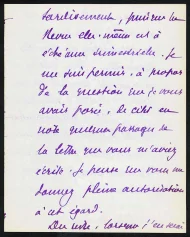 tardivement, puisque la
Revue elle-même est à
échéance trimestrielle. Je
me suis permis, à propos
de la question que je vous
avais posée, de citer en
note quelques passages de
la lettre que vous m'aviez
écrite. Je pense que vous me
donnez pleine autorisation
à cet égard.
Du reste, lorsque j'en serai